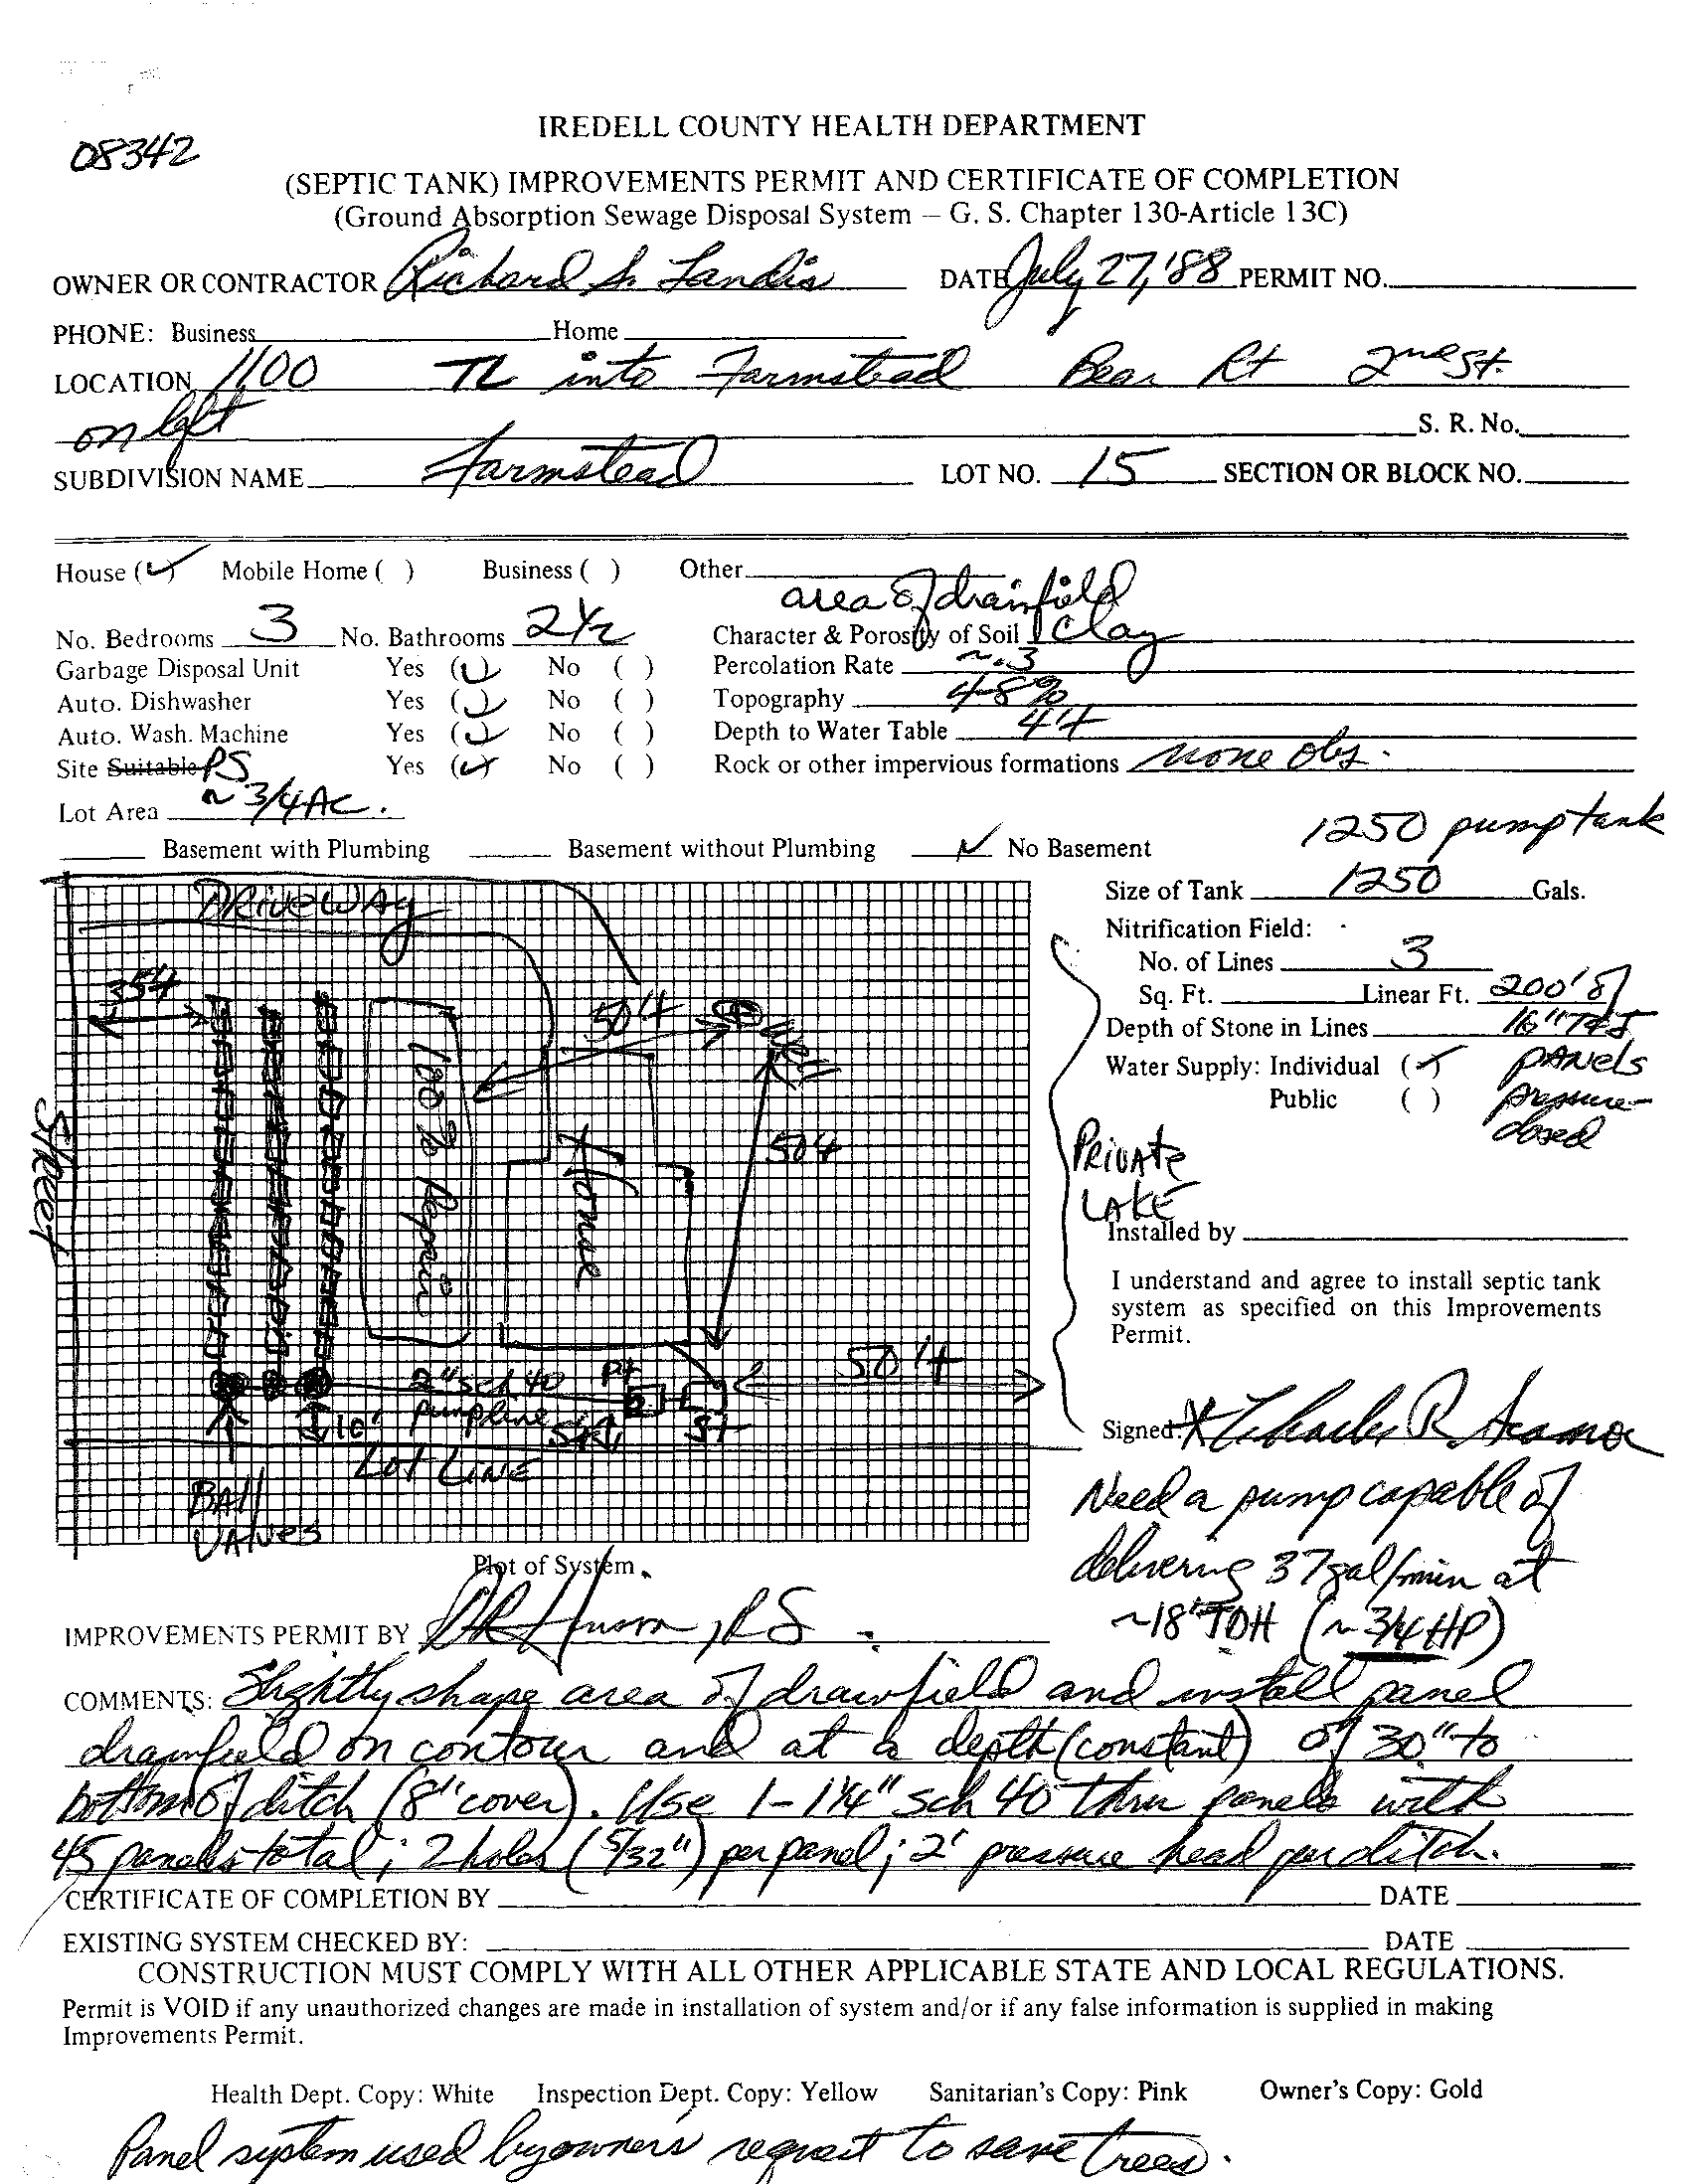 08342
IREDELL COUNTY HEALTH DEPARTMENT
(SEPTIC TANK) IMPROVEMENTS PERMIT AND CERTIFICATE OF COMPLETION
(Ground Absorption Sewage Disposal System – G. S. Chapter 130-Article 13C)
OWNER OR CONTRACTOR Richard S. Landis DATE July 27, '88 PERMIT NO.
PHONE: Business Home
LOCATION 1100 TL into Farmstead Bear Rt 2nd St.
on left S. R. No.
SUBDIVISION NAME Farmstead LOT NO. 15 SECTION OR BLOCK NO.
House (✓) Mobile Home ( ) Business ( ) Other
area of drainfield
No. Bedrooms 3 No. Bathrooms 2½ Character & Porosity of Soil Clay
Garbage Disposal Unit Yes (✓) No ( ) Percolation Rate ~.3
Auto. Dishwasher Yes (✓) No ( ) Topography 4-8%
Auto. Wash. Machine Yes (✓) No ( ) Depth to Water Table 4'+
Site Suitable PS Yes (✓) No ( ) Rock or other impervious formations none obs.
Lot Area ~ 3/4 AC.
1250 pump tank
Basement with Plumbing Basement without Plumbing ✓ No Basement
Size of Tank 1250 Gals.
Nitrification Field:
No. of Lines 3
Sq. Ft. Linear Ft. 200' of
Depth of Stone in Lines 16" T&J
Water Supply: Individual (✓) PANELS
Public ( ) pressure-
dosed
PRIVATE
LAKE
Installed by
I understand and agree to install septic tank
system as specified on this Improvements
Permit.
Signed X Charles R.
DRIVEWAY
35'+
50'+
Well
Street
100% Repair
Home
50'+
50'+
2" sch 40
pumpline
PT
ST
10'
5'+
Lot LINE
BAll
VAlves
Plot of System
Need a pump capable of
delivering 37 gal/min at
~18' TDH (~ 3/4 HP)
IMPROVEMENTS PERMIT BY , RS
COMMENTS: Slightly shape area of drainfield and install panel
drainfield on contour and at a depth (constant) of 30" to
bottom of ditch (8" cover). Use 1-1¼" sch 40 thru panels with
45 panels total; 2 holes (5/32") per panel; 2' pressure head per ditch.
CERTIFICATE OF COMPLETION BY DATE
EXISTING SYSTEM CHECKED BY: DATE
CONSTRUCTION MUST COMPLY WITH ALL OTHER APPLICABLE STATE AND LOCAL REGULATIONS.
Permit is VOID if any unauthorized changes are made in installation of system and/or if any false information is supplied in making
Improvements Permit.
Health Dept. Copy: White Inspection Dept. Copy: Yellow Sanitarian's Copy: Pink Owner's Copy: Gold
Panel system used by owners' request to save trees.